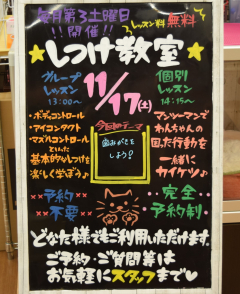 毎月第3土曜日
!!開催!!
レッスン料 無料
★しつけ教室★
グループ
レッスン
13:00〜
11/17(土)
個別
レッスン
14:15〜
・ボディコントロール
・アイコンタクト
・マズルコントロール
といった
基本的なしつけを
楽しく学ぼう♪
今回のテーマ
歯みがきを
しよう!
マンツーマンで
わんちゃんの
困った行動を
一緒に
カイケツ♪
予約
不要
完全
予約制
どなた様でもご利用いただけます。
ご予約・ご質問等は
お気軽にスタッフまで♥